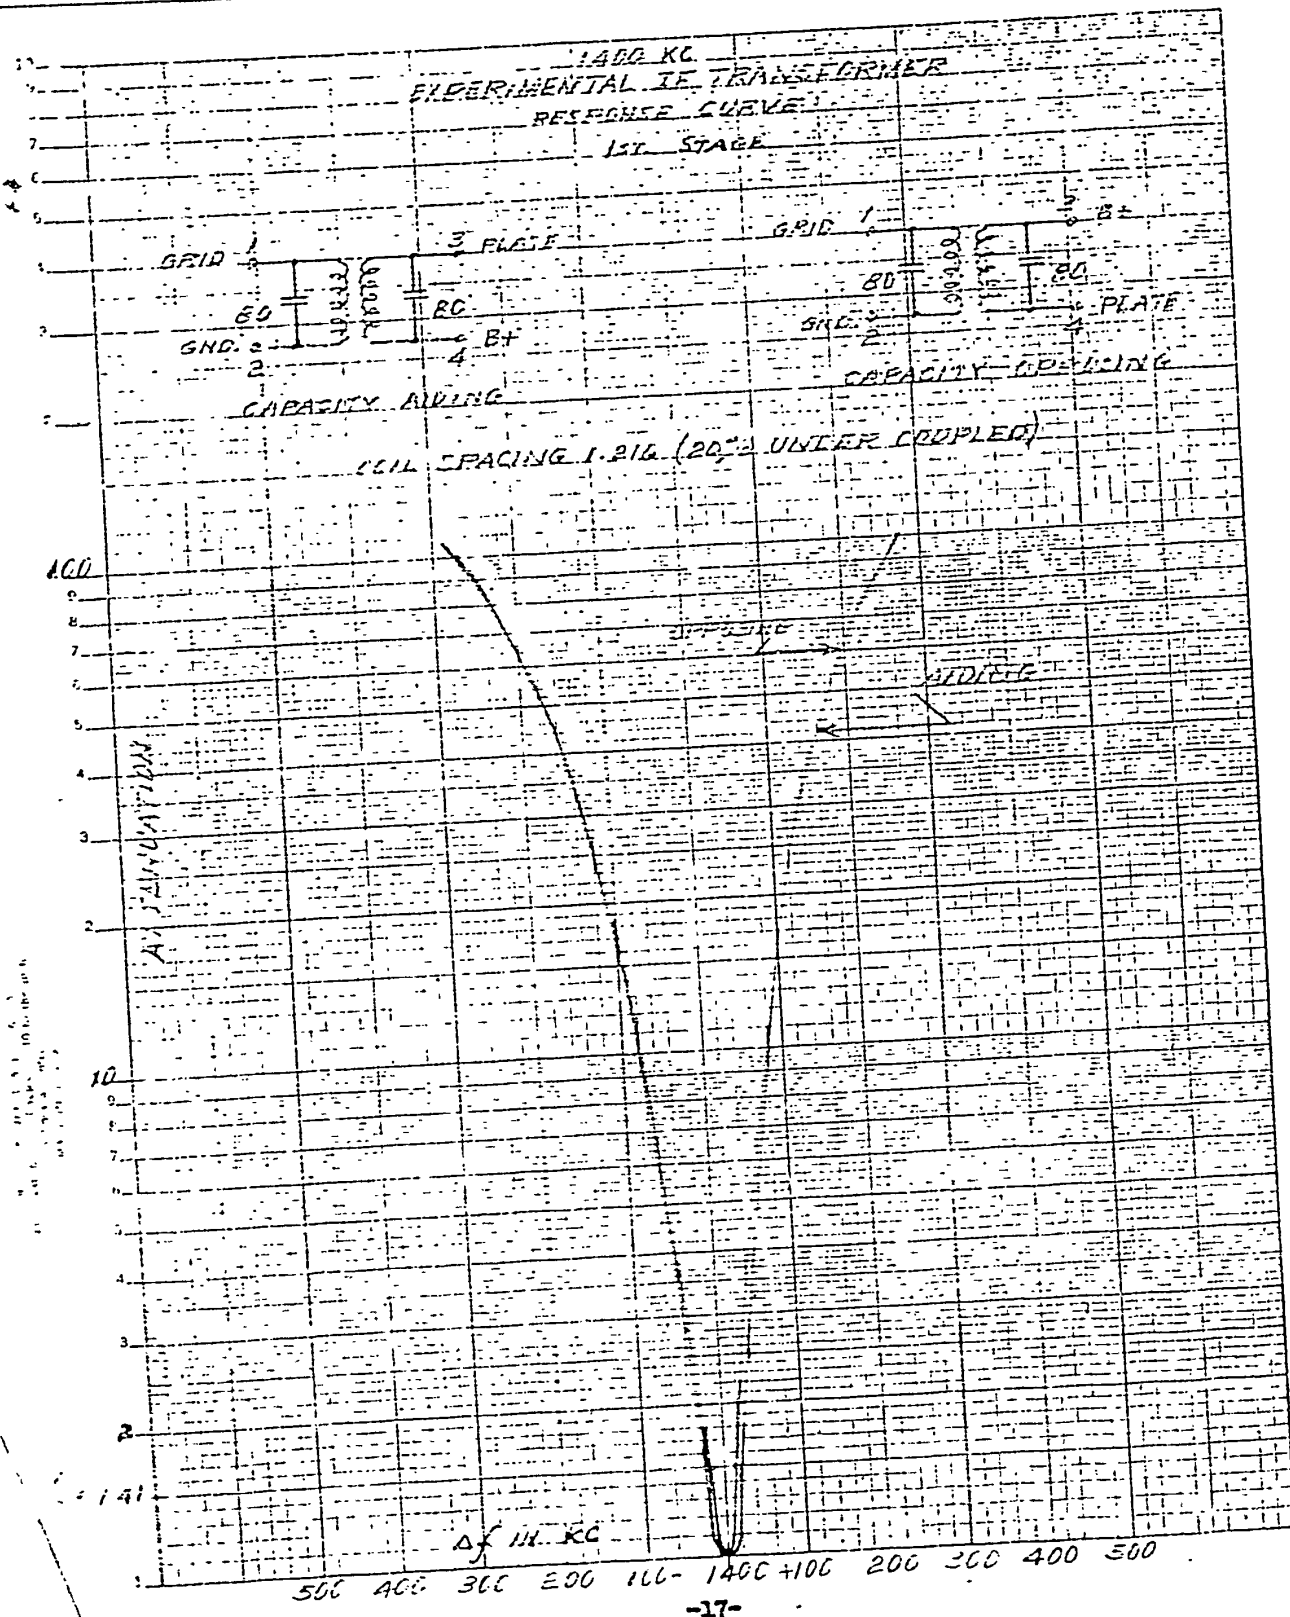 1400 KC
EXPERIMENTAL IF TRANSFORMER
RESPONSE CURVE
1ST. STAGE
GRID 1
3 PLATE
80
80
GND. 2
4 B+
CAPACITY AIDING
GRID 1
B+
80
80
GND. 2
4 PLATE
CAPACITY OPPOSING
COIL SPACING 1.216 (20% UNDER COUPLED)
OPPOSING
AIDING
ATTENUATION
7
100
9
8
7
6
5
4
3
2
10
9
8
7
6
5
4
3
2
1.41
1
Δf IN KC
500 400 300 200 100- 1400 +100 200 300 400 500
-17-